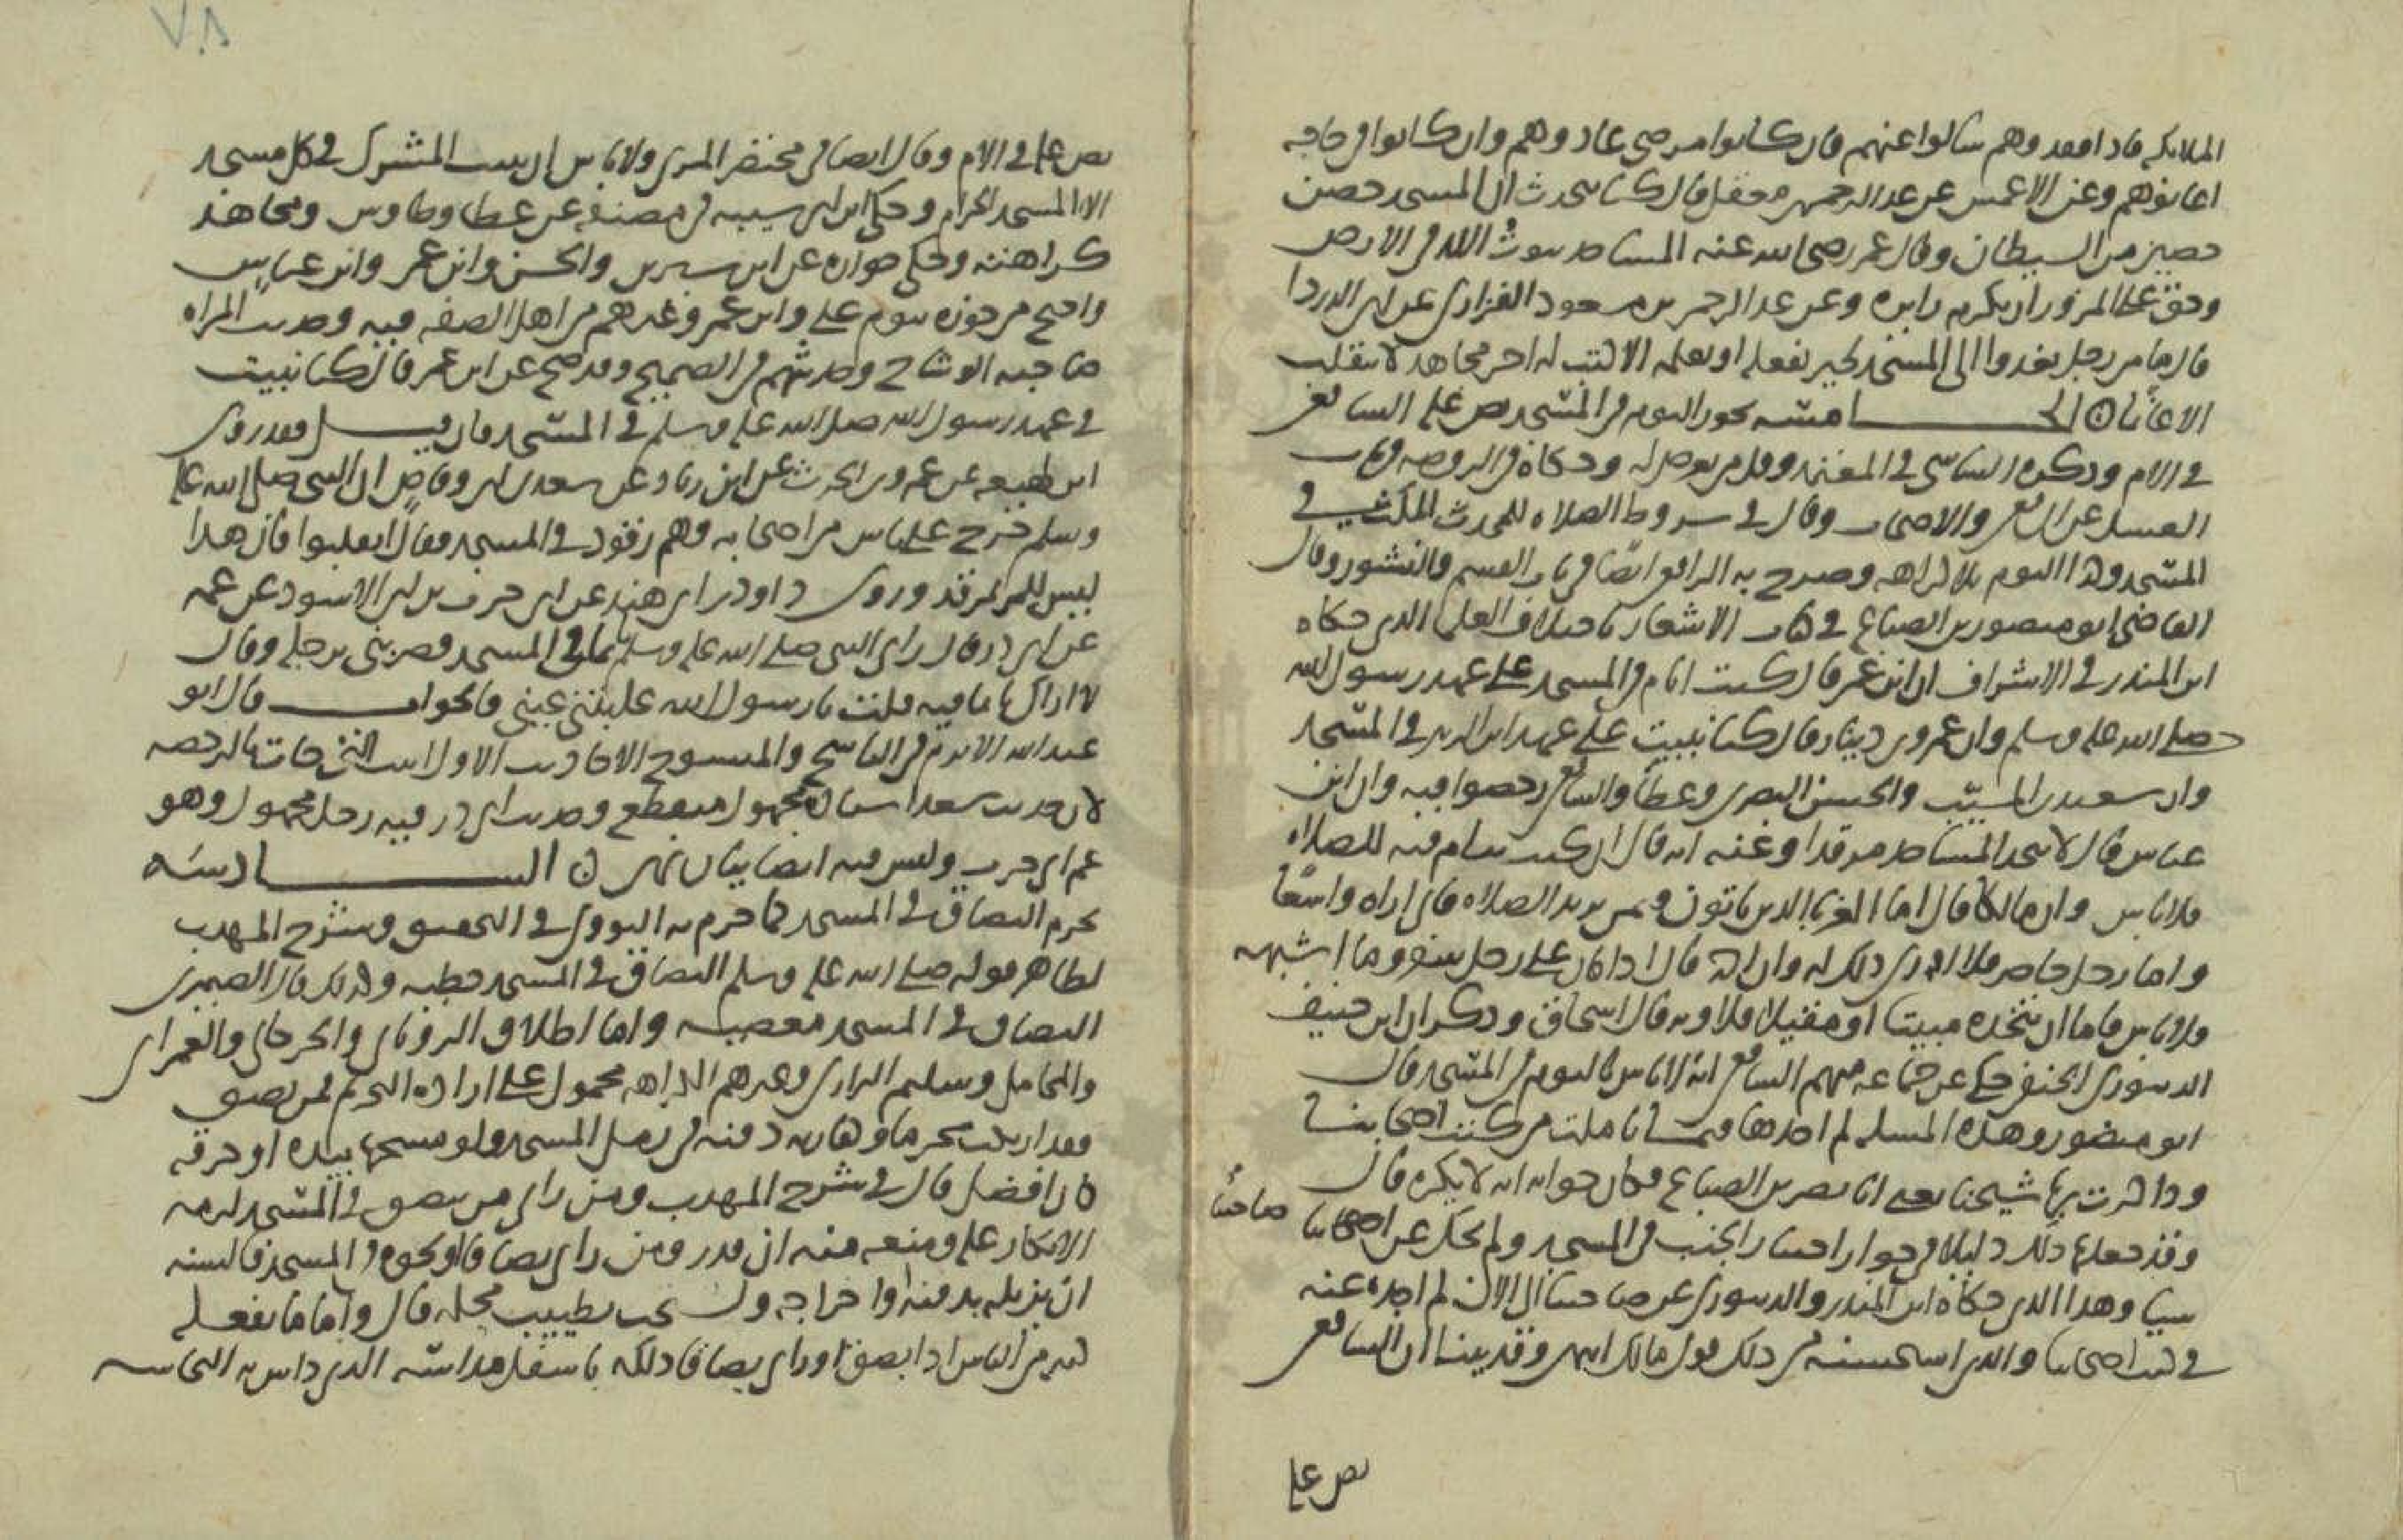 الملائكة فاذا فقدوهم سالوا عنهم فان كانوا مرضى عادوهم وان كانوا في حاجة
اعانوهم وعن الاعمش عن عبد الرحمن بن معقل قال كنا نحدث ان المسجد حصن
حصين من الشيطان وقال عمر رضى الله عنه المساجد بيوت الله في الارض
وحق على المزور ان يكرم زايره وعن عبد الرحمن بن مسعود الفزاري عن ابى الدردا
قال ما من رجل يغدوا الى المسجد لخير يفعله او يعلمه الا كتب له اجر مجاهد لا ينقلب
الا غانما ن الخامسة يجوز النوم في المسجد نص عليه الشافعي
في الام وذكره الشاشي في المعتمد وقل من تعرض له وحكاه في الروضة في باب
الغسل عن الشافعي والاصحاب وقال في شروط الصلاة للمحدث المكث في
المسجد وكذا النوم بلا كراهة وصرح به الرافعي ايضا في باب القسم والنشوز وقال
القاضي ابو منصور بن الصباغ في كتاب الاشعار باختلاف العلما الذي حكاه
ابن المنذر في الاشراف ان ابن عمر قال كنت انام في المسجد على عهد رسول الله
صلى الله عليه وسلم وان عمرو بن دينار قال كنا نبيت على عهد ابن الزبير في المسجد
وان سعيد بن المسيب والحسن البصري وعطا والشافعي رخصوا فيه وان ابن
عباس قال لا تتخذ المساجد مرقدا وعنه انه قال ان كنت تنام فيه للصلاة
فلا باس وان مالكا قال اما الغربا الذين ياتون ممن يريد الصلاة فاني اراه واسعا
واما رجل حاضر فلا ارى ذلك له وان احمد قال اذا كان على رجل سفر وما اشبهه
فلا باس فاما ان يتخذه مبيتا او مقيلا فلا وبه قال اسحاق وذكر ان ابن حنيف
الدينوري الحنفي حكى عن جماعة منهم الشافعي انه لا باس بالنوم في المسجد قال
ابو منصور وهذه المسلة لم اجدها فيما تاملت من كتب اصحابنا
وذاكرت بها شيخنا يعني ابا نصر بن الصباغ فكان جوابه انه لا يكره قال
وقد جعلها ذلك دليلا في جواز احتباز الجنب في المسجد ولم يحك عن اصحابنا صاحبنا
شيا وهذا الذي حكاه ابن المنذر والدينوري عن صاحبنا الى الان لم اجده عنه
في كتب اصحابنا والذي استحسنه في ذلك قول مالك انتهى وقد بينا ان الشافعي
نص عليه
٧٨
نص عليه في الام وقال ايضا في مختصر المزني ولا باس ان يبيت المشرك في كل مسجد
الا المسجد الحرام وحكى ابن ابي شيبة في مصنفه عن عطا وطاوس ومجاهد
كراهته وحكى جوازه عن ابن سيرين والحسن وابن عمر وابن عباس
واحتج من جوزه بنوم علي وابن عمر وغيرهم من اهل الصفة فيه وحديث المراه
صاحبة الوشاح وحديثهم في الصحيح وقد صح عن ابن عمر قال كنا نبيت
في عهد رسول الله صلى الله عليه وسلم في المسجد فان قيل فقد روى
ابن لهيعة عن عمرو بن الحرث عن ابن زياد عن سعد بن ابي وقاص ان النبي صلى الله عليه
وسلم خرج على ناس من اصحابه وهم رقود في المسجد فقال انقلبوا فان هذا
ليس للمرء مرقد وروى داود بن ابي هند عن ابي حرب بن ابي الاسود عن عمه
عن ابي ذر قال رآني النبي صلى الله عليه وسلم نائما في المسجد فضربني برجله وقال
لا اراك نايما فيه قلت يا رسول الله غلبتني عيني فالجواب قال ابو
عبد الله الاثرم في الناسخ والمنسوخ الاحاديث الاول اثبت التي جات بالرخصة
لان حديث سعد اسناده مجهول منقطع وحديث ابي ذر فيه رجل مجهول وهو
عم ابي حرب وليس فيه ايضا بيان نهى ن السادسة
يحرم البصاق في المسجد كما جزم به النووي في التحقيق وشرح المهذب
لظاهر قوله صلى الله عليه وسلم البصاق في المسجد خطية وكذلك قال الصيمري
البصاق في المسجد معصية واما اطلاق الروياني والجرجاني والعمراني
والمحاملي وسليم الرازي وغيرهم الكراهة محمول على ارادة التحريم لمن بصق
فقد ارتكب محرما وكفارته دفنه في رمل المسجد ولو مسحها بيده او خرقة
كان افضل قال في شرح المهذب ومن راى من يبصق في المسجد لزمه
الانكار عليه ومنعه منه ان قدر ومن راى بصاقا او نحوه في المسجد فالسنة
ان يزيله بدفنه او اخراجه ويستحب تطييب محله قال واما ما يفعله
كثير من الناس اذا بصق او راى بصاقا دلكه باسفل مداسه الذي داس به النجاسة